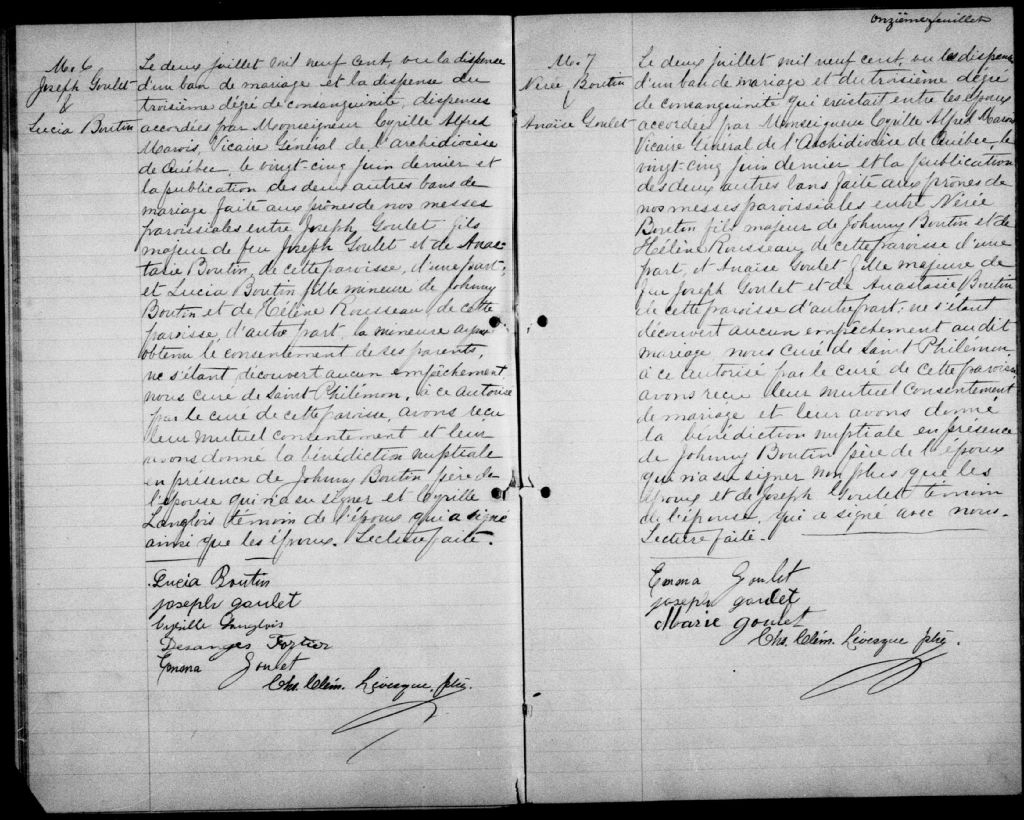 M. 6
Joseph Goulet
&
Lucia Boutin
Le deux juillet mil neuf cent, vu la dispense
d'un ban de mariage et la dispense du
troisième dégré de consanguinité, dispenses
accordées par Monseigneur Cyrille Alfred
Marois, Vicaire Général de l'archidiocèse
de Québec, le vingt-cinq juin dernier et
la publication des deux autres bans de
mariage faite aux prônes de nos messes
paroissiales entre Joseph Goulet fils
majeur de feu Joseph Goulet et de Anas-
tasie Boutin, de cette paroisse, d'une part,
et Lucia Boutin fille mineure de Johnny
Boutin et de Hélène Rousseau, de cette
paroisse, d'autre part, la mineure ayant
obtenu le consentement de ses parents,
ne s'étant découvert aucun empêchement
nous curé de Saint Philémon, à ce autorisé
par le curé de cette paroisse, avons reçu
leur mutuel consentement et leur
avons donné la bénédiction nuptiale
en présence de Johnny Boutin père de
l'épouse qui n'a su signer et Cyrille
Langlois témoin de l'époux qui a signé
ainsi que les époux. Lecture faite.
Lucia Boutin
joseph goulet
Cyrille Langlois
Desanges Fortier
Emma Goulet
Chs. Clém. Lévesque, ptre.
onzième feuillet
M. 7
Nérée Boutin
&
Anaïse Goulet
Le deux juillet mil neuf cent, vu les dispenses
d'un ban de mariage et du troisième dégré
de consanguinité qui existait entre les époux
accordées par Monseigneur Cyrille Alfred Marois
Vicaire Général de l'Archidiocèse de Québec, le
vingt-cinq juin dernier et la publication
des deux autres bans faite aux prônes de
nos messes paroissiales entre Nérée
Boutin fils majeur de Johnny Boutin et de
Hélène Rousseau, de cette paroisse d'une
part, et Anaïse Goulet fille majeure de
feu Joseph Goulet et de Anastasie Boutin
de cette paroisse d'autre part; ne s'étant
découvert aucun empêchement au dit
mariage, nous curé de Saint Philémon,
à ce autorisé par le curé de cette paroisse,
avons reçu leur mutuel consentement
de mariage et leur avons donné
la bénédiction nuptiale en présence
de Johnny Boutin père de l'époux
qui n'a su signer non plus que les
époux et de Joseph Goulet témoin
de l'épouse, qui a signé avec nous.
Lecture faite.
Emma Goulet
joseph goulet
Marie goulet
Chs. Clém. Lévesque ptre.